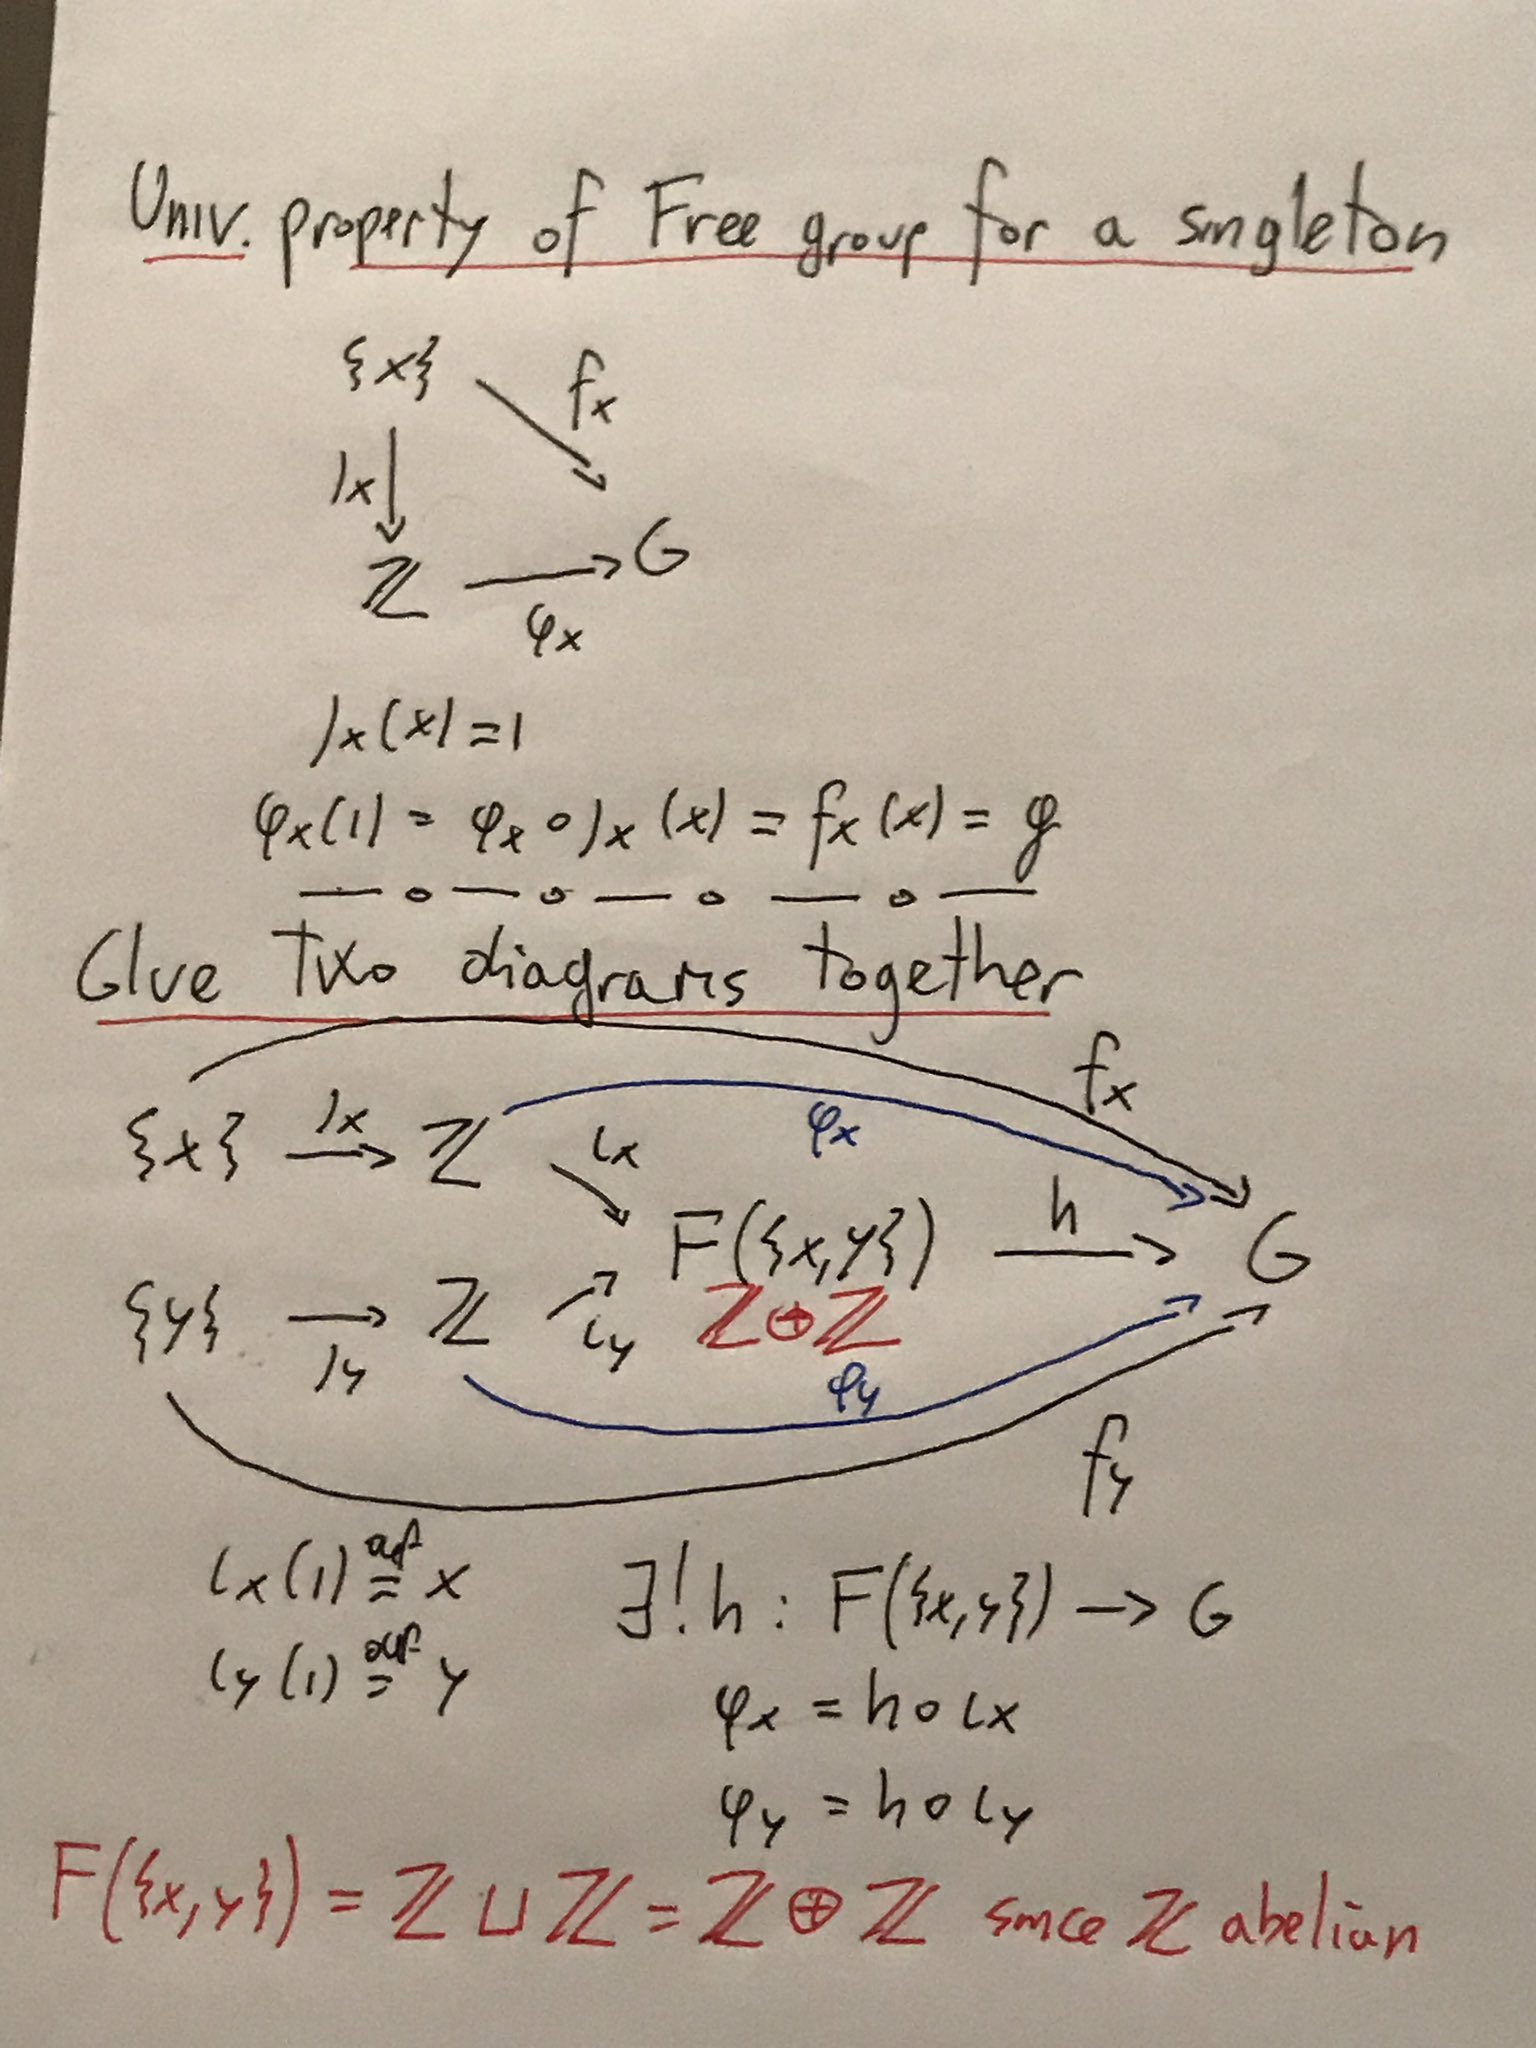 Univ. property of Free group for a singleton
{x} f_x
j_x
ℤ G
φ_x
j_x(x) = 1
φ_x(1) = φ_x ∘ j_x (x) = f_x (x) = g
Glue Two diagrams together
f_x
{x} j_x ℤ ι_x φ_x
F({x,y}) h G
{y} j_y ℤ ι_y ℤ⊕ℤ
φ_y
f_y
ι_x(1) def= x ∃! h : F({x,y}) → G
ι_y(1) def= y
φ_x = h ∘ ι_x
φ_y = h ∘ ι_y
F({x,y}) = ℤ ⊔ ℤ = ℤ ⊕ ℤ since ℤ abelian